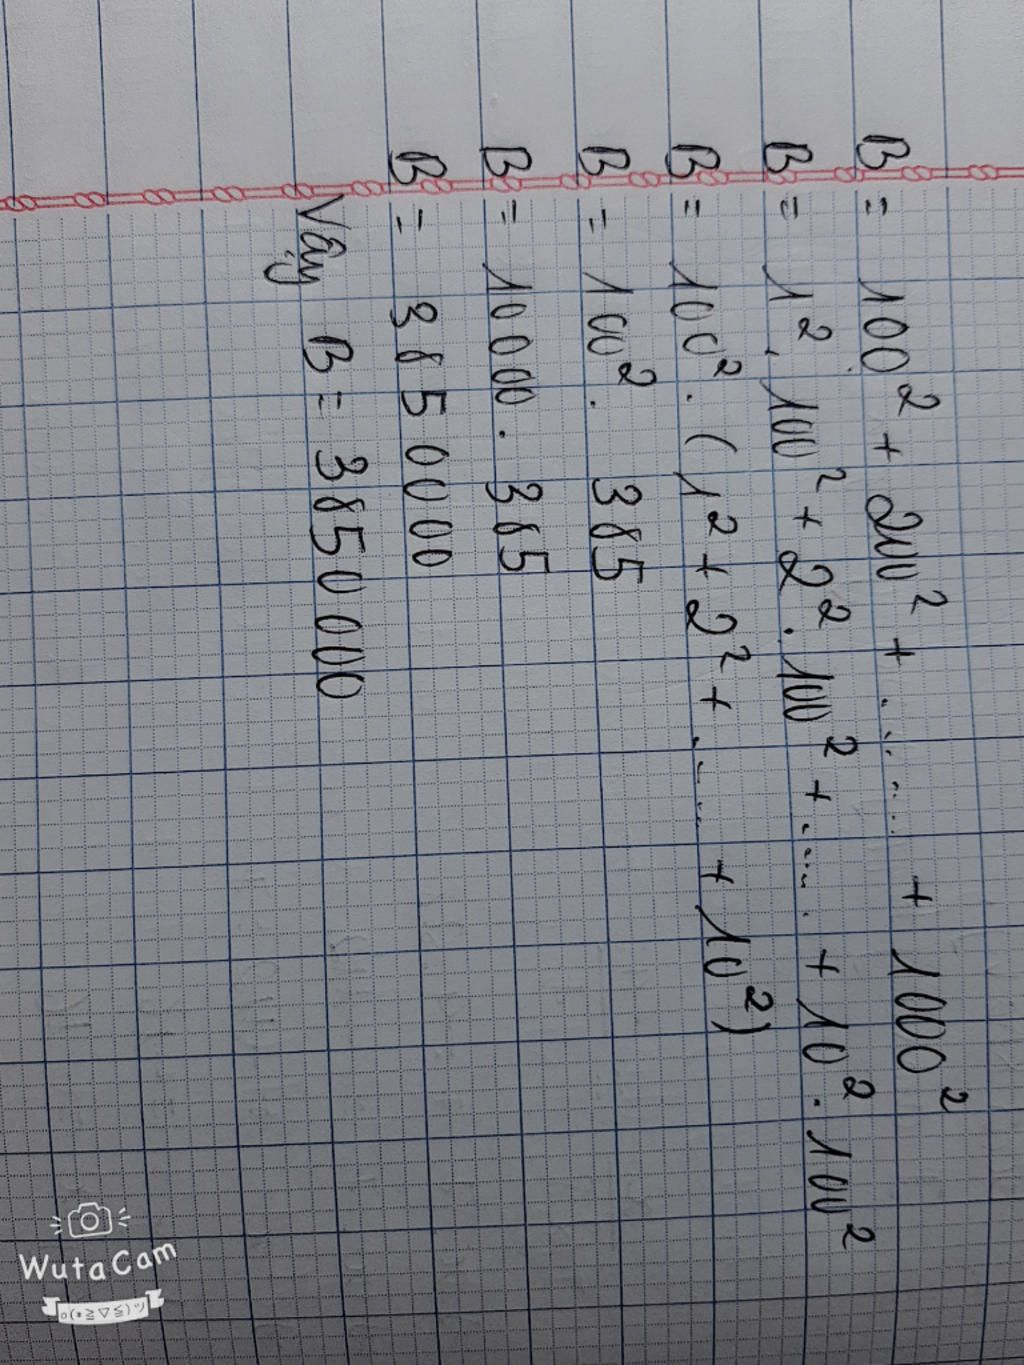 B = 100² + 200² + ......... + 1000²
B = 1². 100² + 2². 100² + ....... + 10². 100²
B = 100². (1² + 2² + ....... + 10²)
B = 100². 385
B = 10000. 385
B = 3850000
Vậy B = 3850000
WutaCam
o(*≧▽≦)ツ